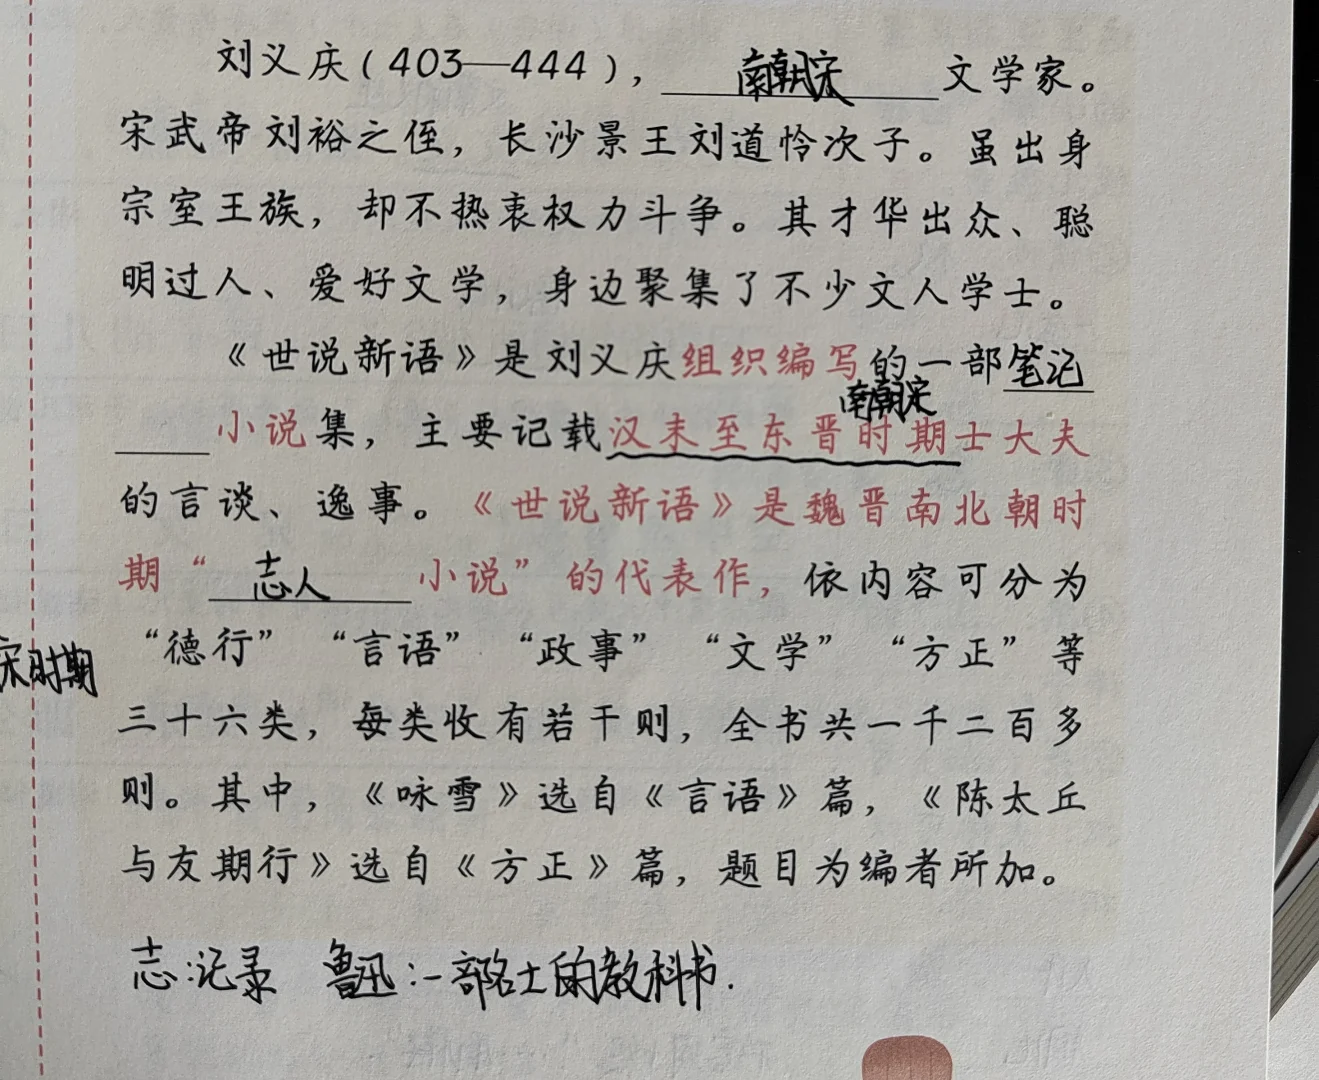 刘义庆(403—444),南朝宋文学家。
宋武帝刘裕之侄,长沙景王刘道怜次子。虽出身
宗室王族,却不热衷权力斗争。其才华出众、聪
明过人、爱好文学,身边聚集了不少文人学士。
《世说新语》是刘义庆组织编写的一部笔记
南朝宋
小说集,主要记载汉末至东晋时期士大夫
的言谈、逸事。《世说新语》是魏晋南北朝时
期“志人小说”的代表作,依内容可分为
宋时期
“德行” “言语” “政事” “文学” “方正” 等
三十六类,每类收有若干则,全书共一千二百多
则。其中,《咏雪》选自《言语》篇,《陈太丘
与友期行》选自《方正》篇,题目为编者所加。
志:记录 鲁迅:一部名士的教科书.